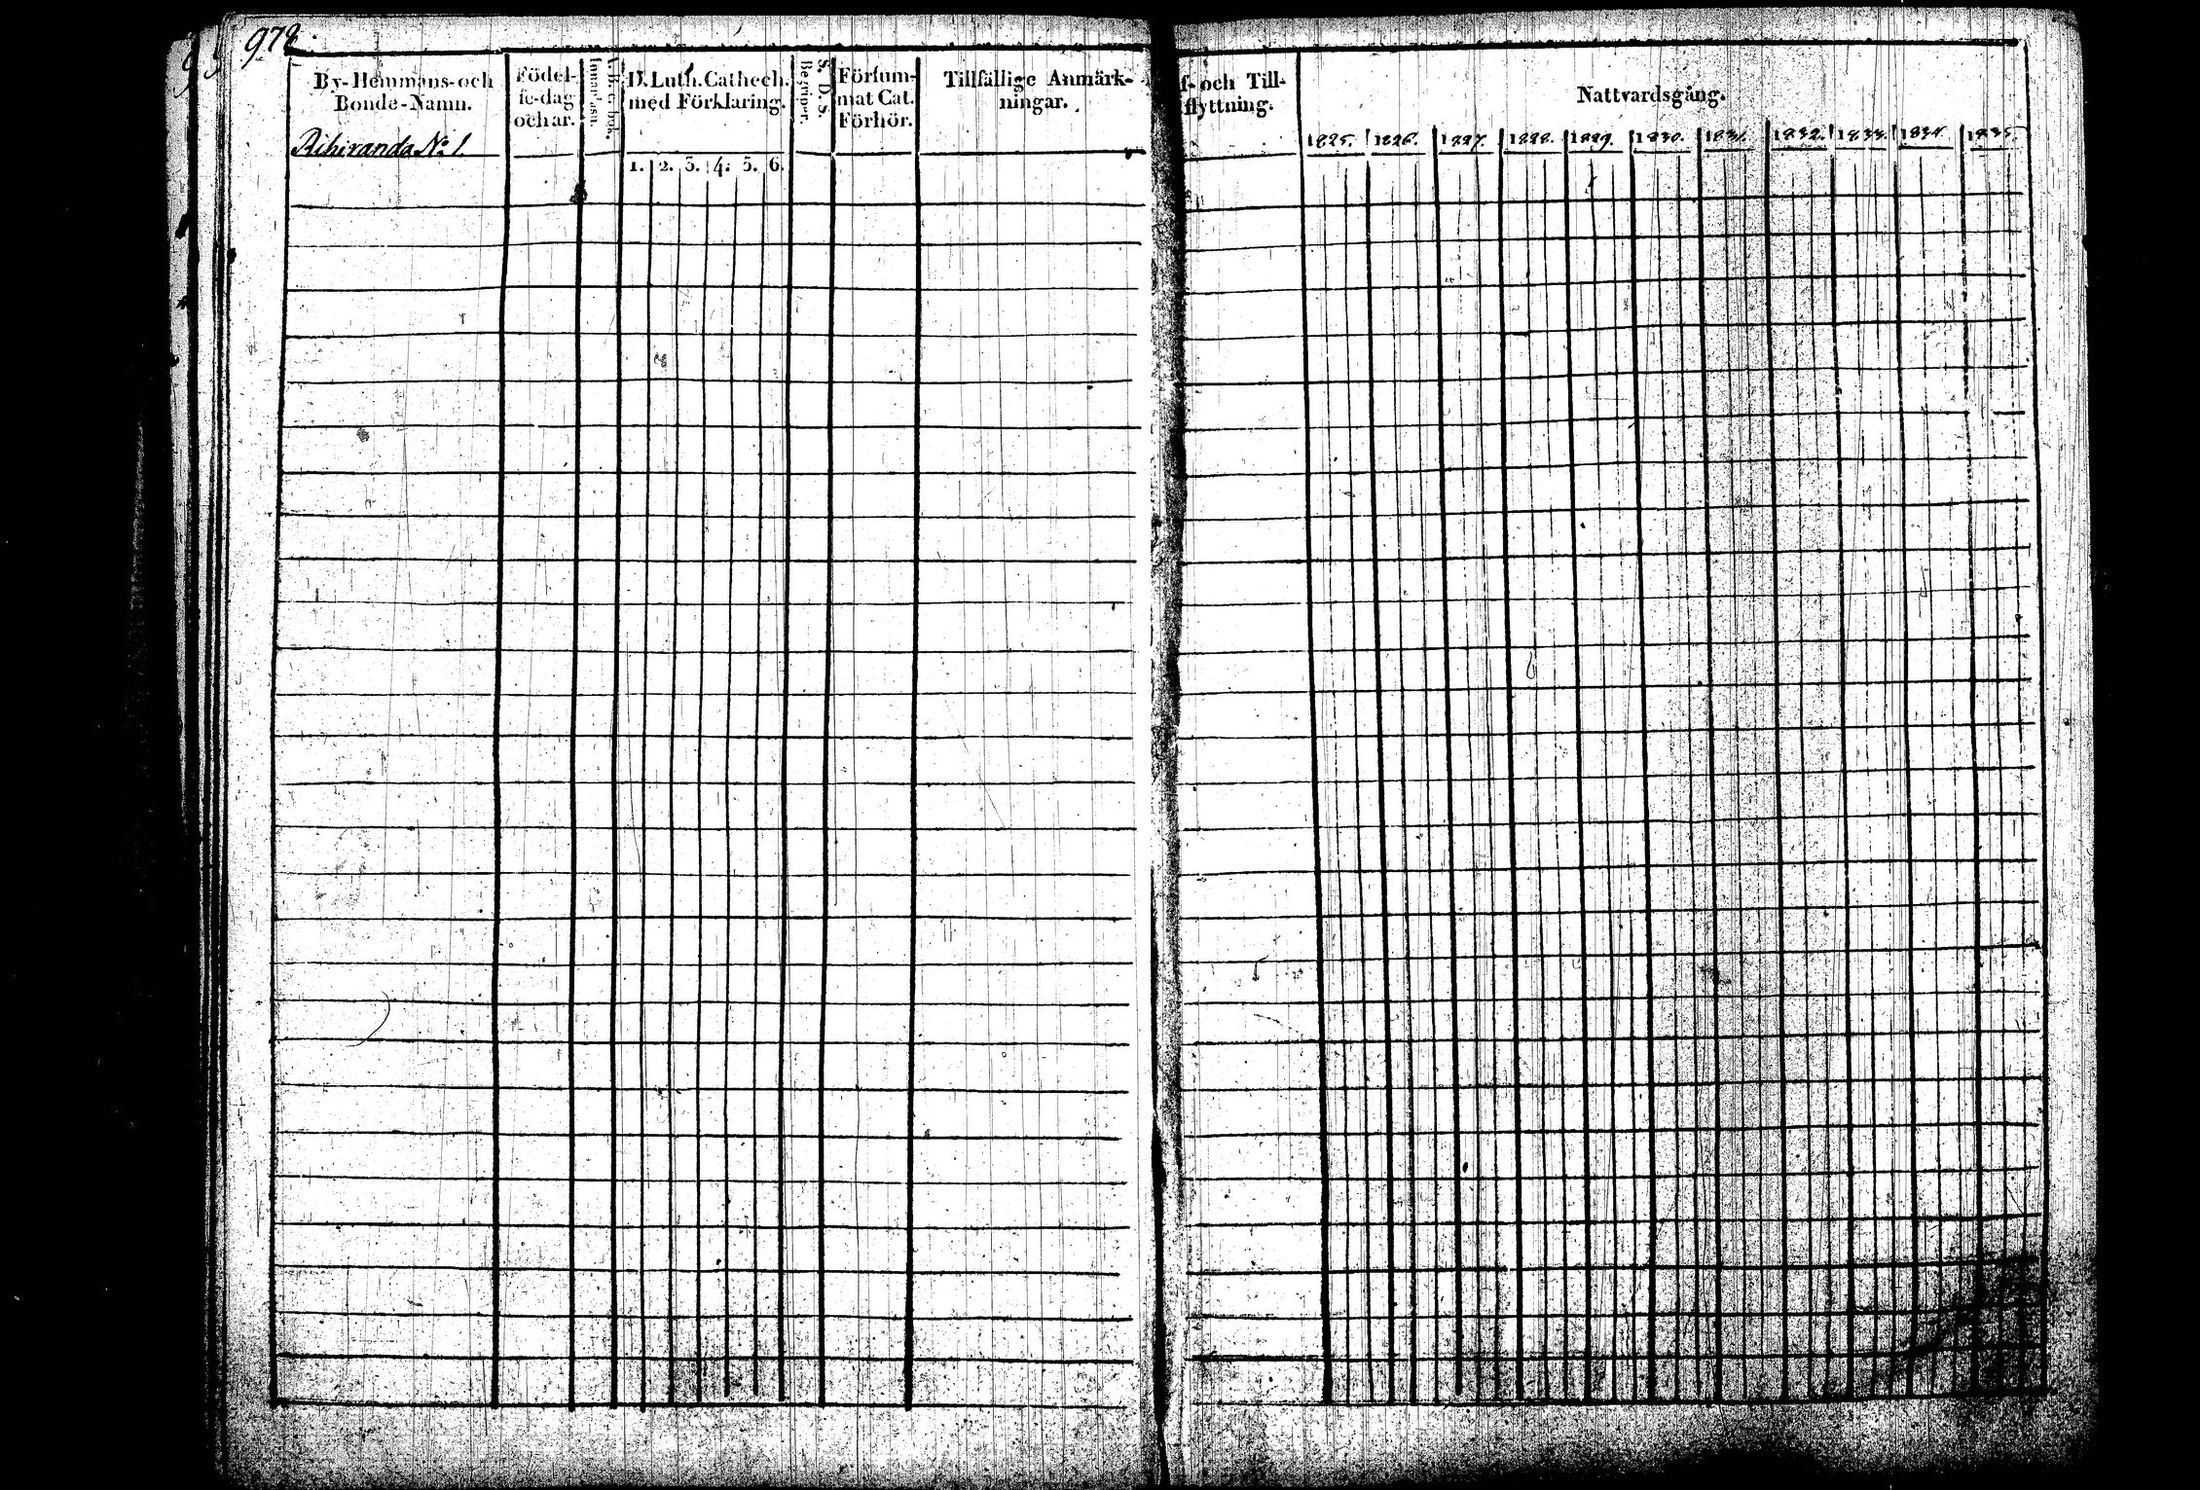 978
By-Hemmans-och
Bonde-Namn.
Rihiranda No 1.
Födel-
se-dag
och år.
D. Luth. Cathech.
med Förklaring.
1. 2. 3. 4. 5. 6.
S. D. S.
Begriper.
Försum-
mat Cat.
Förhör.
Tillfällige Anmärk-
ningar.
f- och Till-
flyttning.
Nattvardsgång.
1825. 1826. 1827. 1828. 1829. 1830. 1831. 1832. 1833. 1834. 1835.